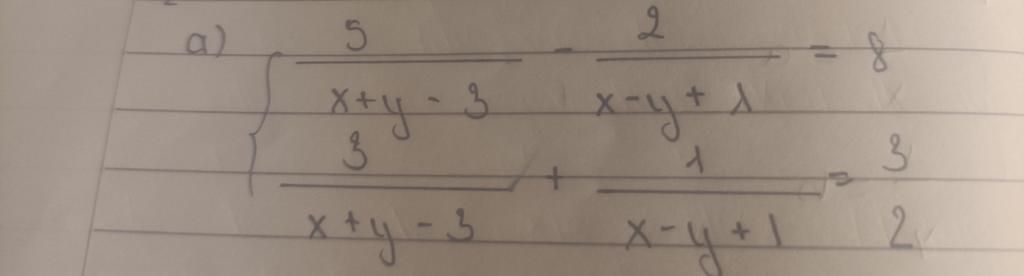 a) { 5/(x+y-3) - 2/(x-y+1) = 8
3/(x+y-3) + 1/(x-y+1) = 3/2